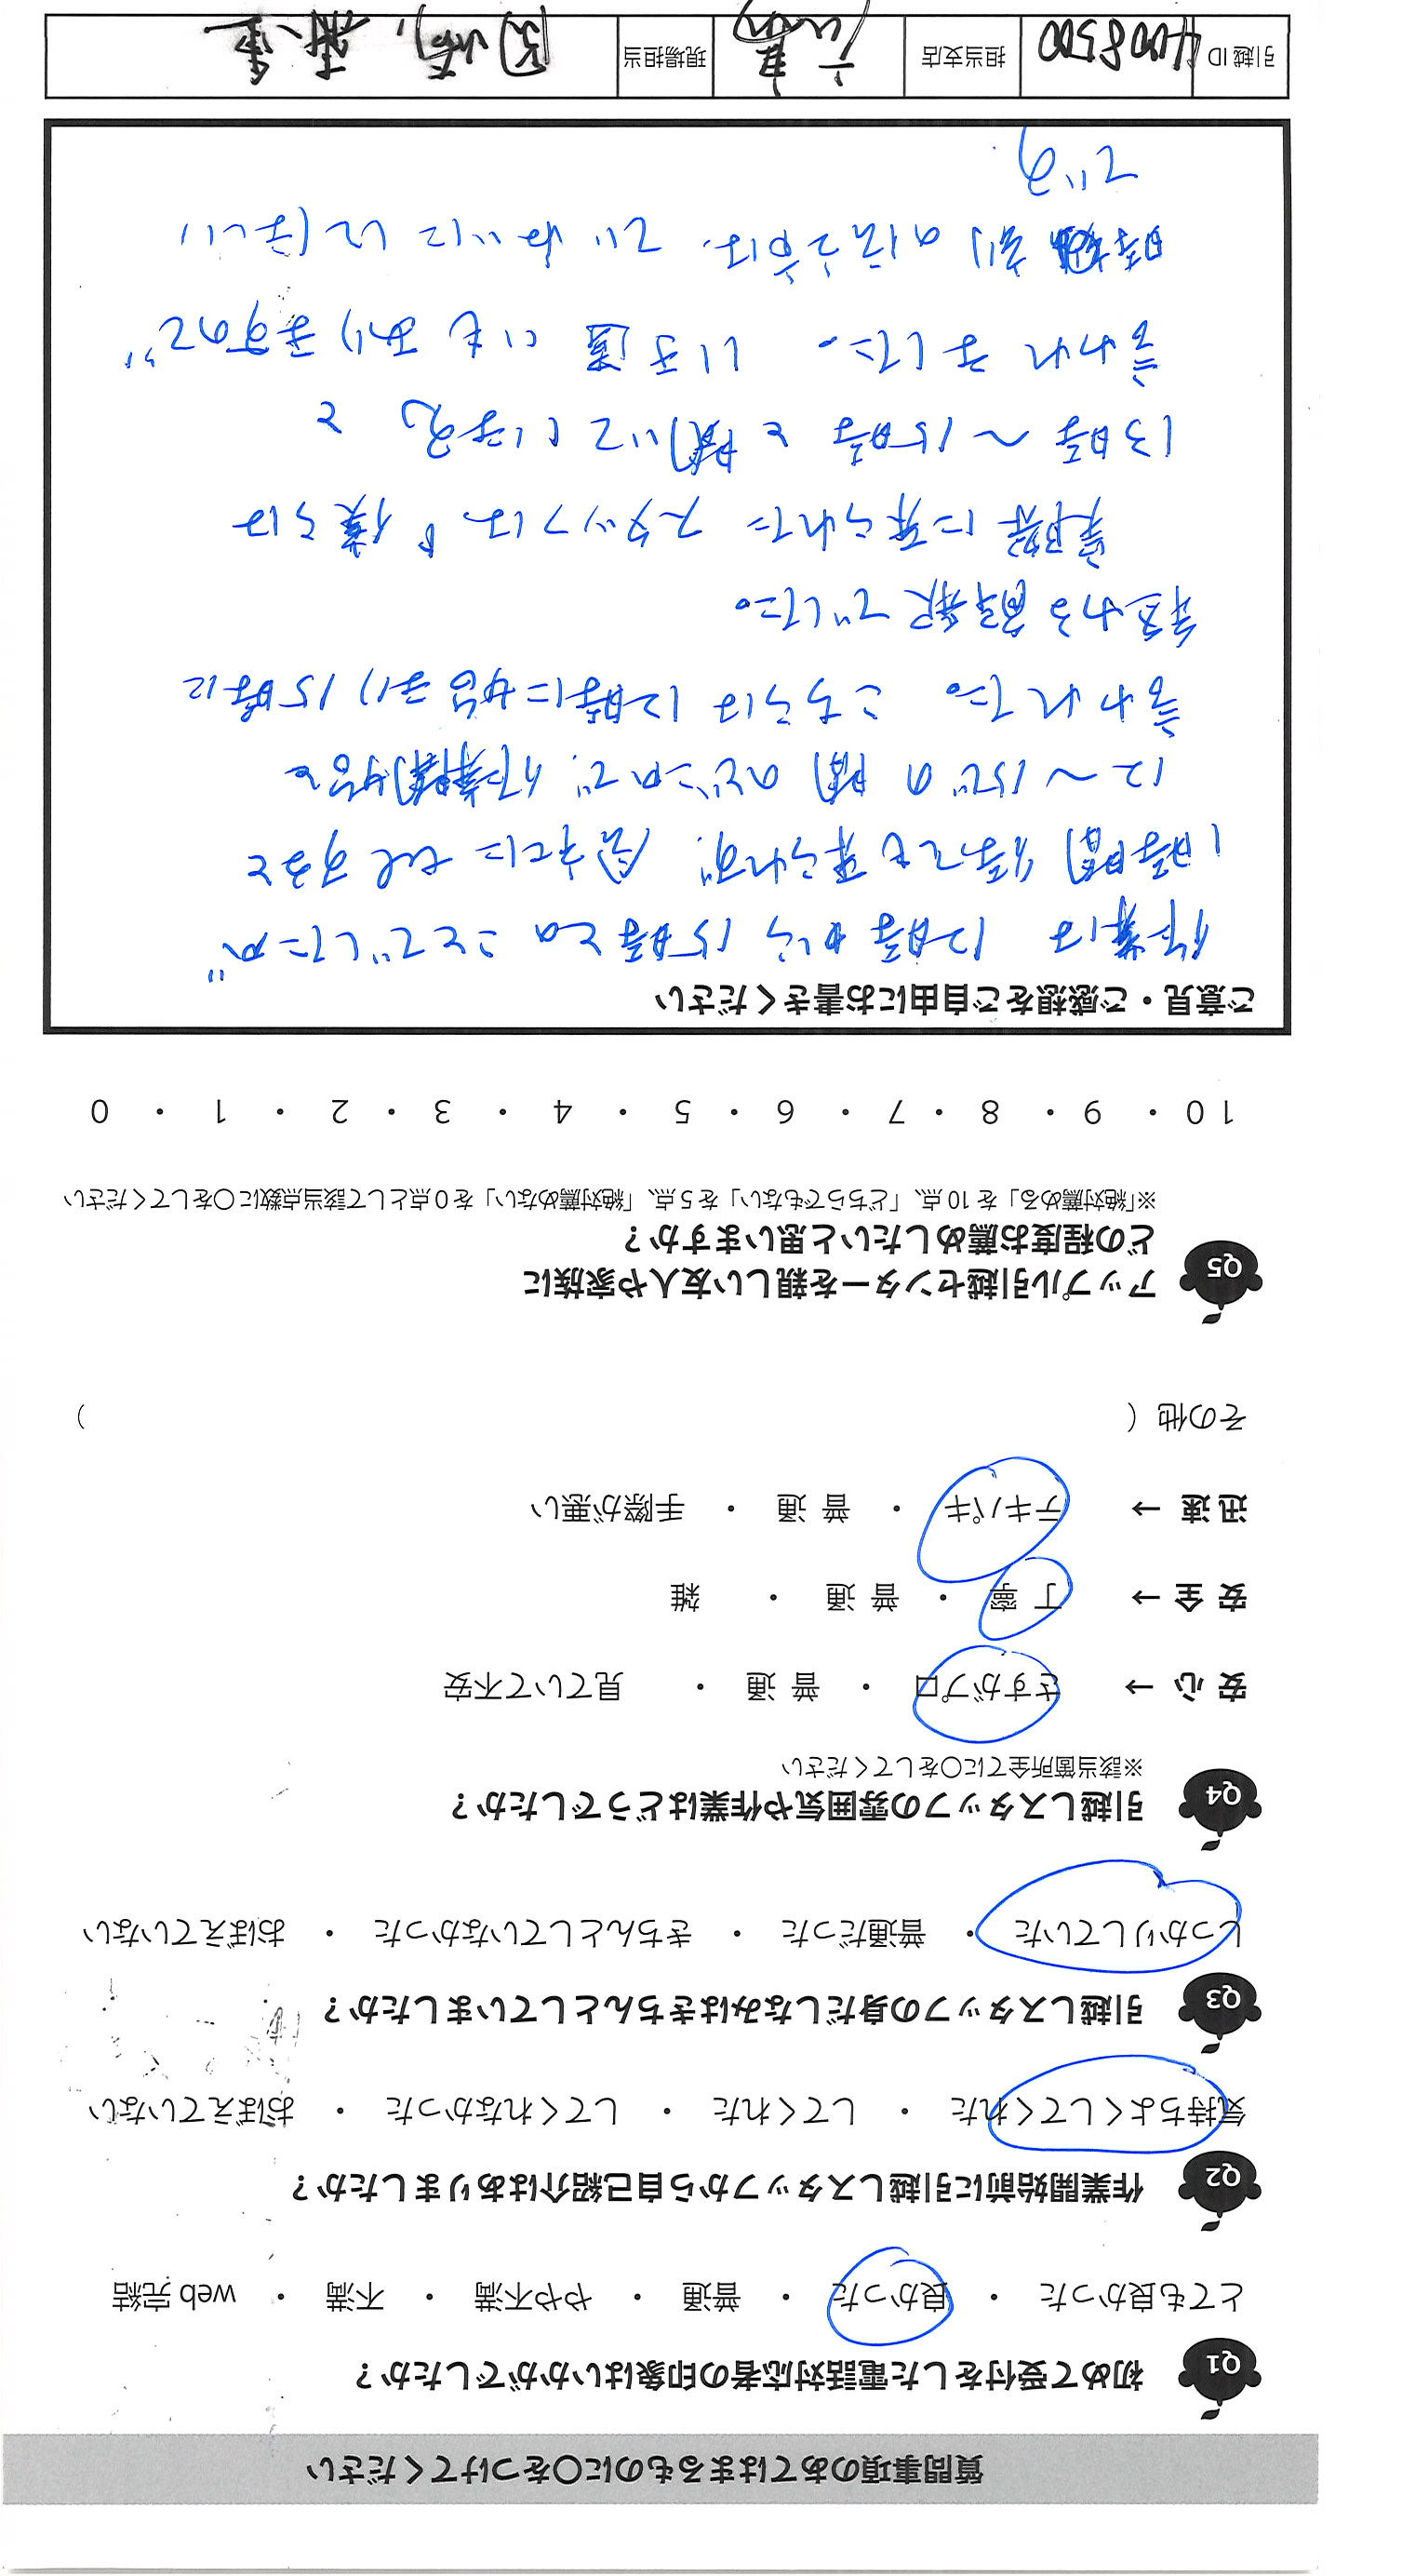 質問事項のあてはまるものに〇をつけてください
Q1 初めて受付をした電話対応者の印象はいかがでしたか？
とても良かった ・ 良かった ・ 普通 ・ やや不満 ・ 不満 ・ web 完結
Q2 作業開始前に引越しスタッフから自己紹介はありましたか？
気持ちよくしてくれた ・ してくれた ・ してくれなかった ・ おぼえていない
Q3 引越しスタッフの身だしなみはきちんとしていましたか？
しっかりしていた ・ 普通だった ・ きちんとしていなかった ・ おぼえていない
Q4 引越しスタッフの雰囲気や作業はどうでしたか？
※該当箇所全てに〇をしてください
安 心 → さすがプロ ・ 普 通 ・ 見ていて不安
安 全 → 丁 寧 ・ 普 通 ・ 雑
迅 速 → テキパキ ・ 普 通 ・ 手際が悪い
その他 （ ）
Q5 アップル引越センターを親しい友人や家族に
どの程度お薦めしたいと思いますか？
※「絶対薦める」を 10 点、「どちらでもない」を 5 点、「絶対薦めない」を 0 点として該当点数に〇をしてください
10 ・ 9 ・ 8 ・ 7 ・ 6 ・ 5 ・ 4 ・ 3 ・ 2 ・ 1 ・ 0
ご意見・ご感想をご自由にお書きください
作業は 12時から 15時とのことでしたが
1時間 待っても来られず、会社に telすると
12～15での間のどこかで、作業開始と
言われた。こちらは 12時に始まり 15時に
終わる解釈でした。
実際に来られた スタッフは、「僕らは
13時～15時 と聞いています」と
言われました。 いき違いもありますので
時刻の伝言は、ていねいにしてほしい
です.
引越 ID 4008500 担当支店 現場担当